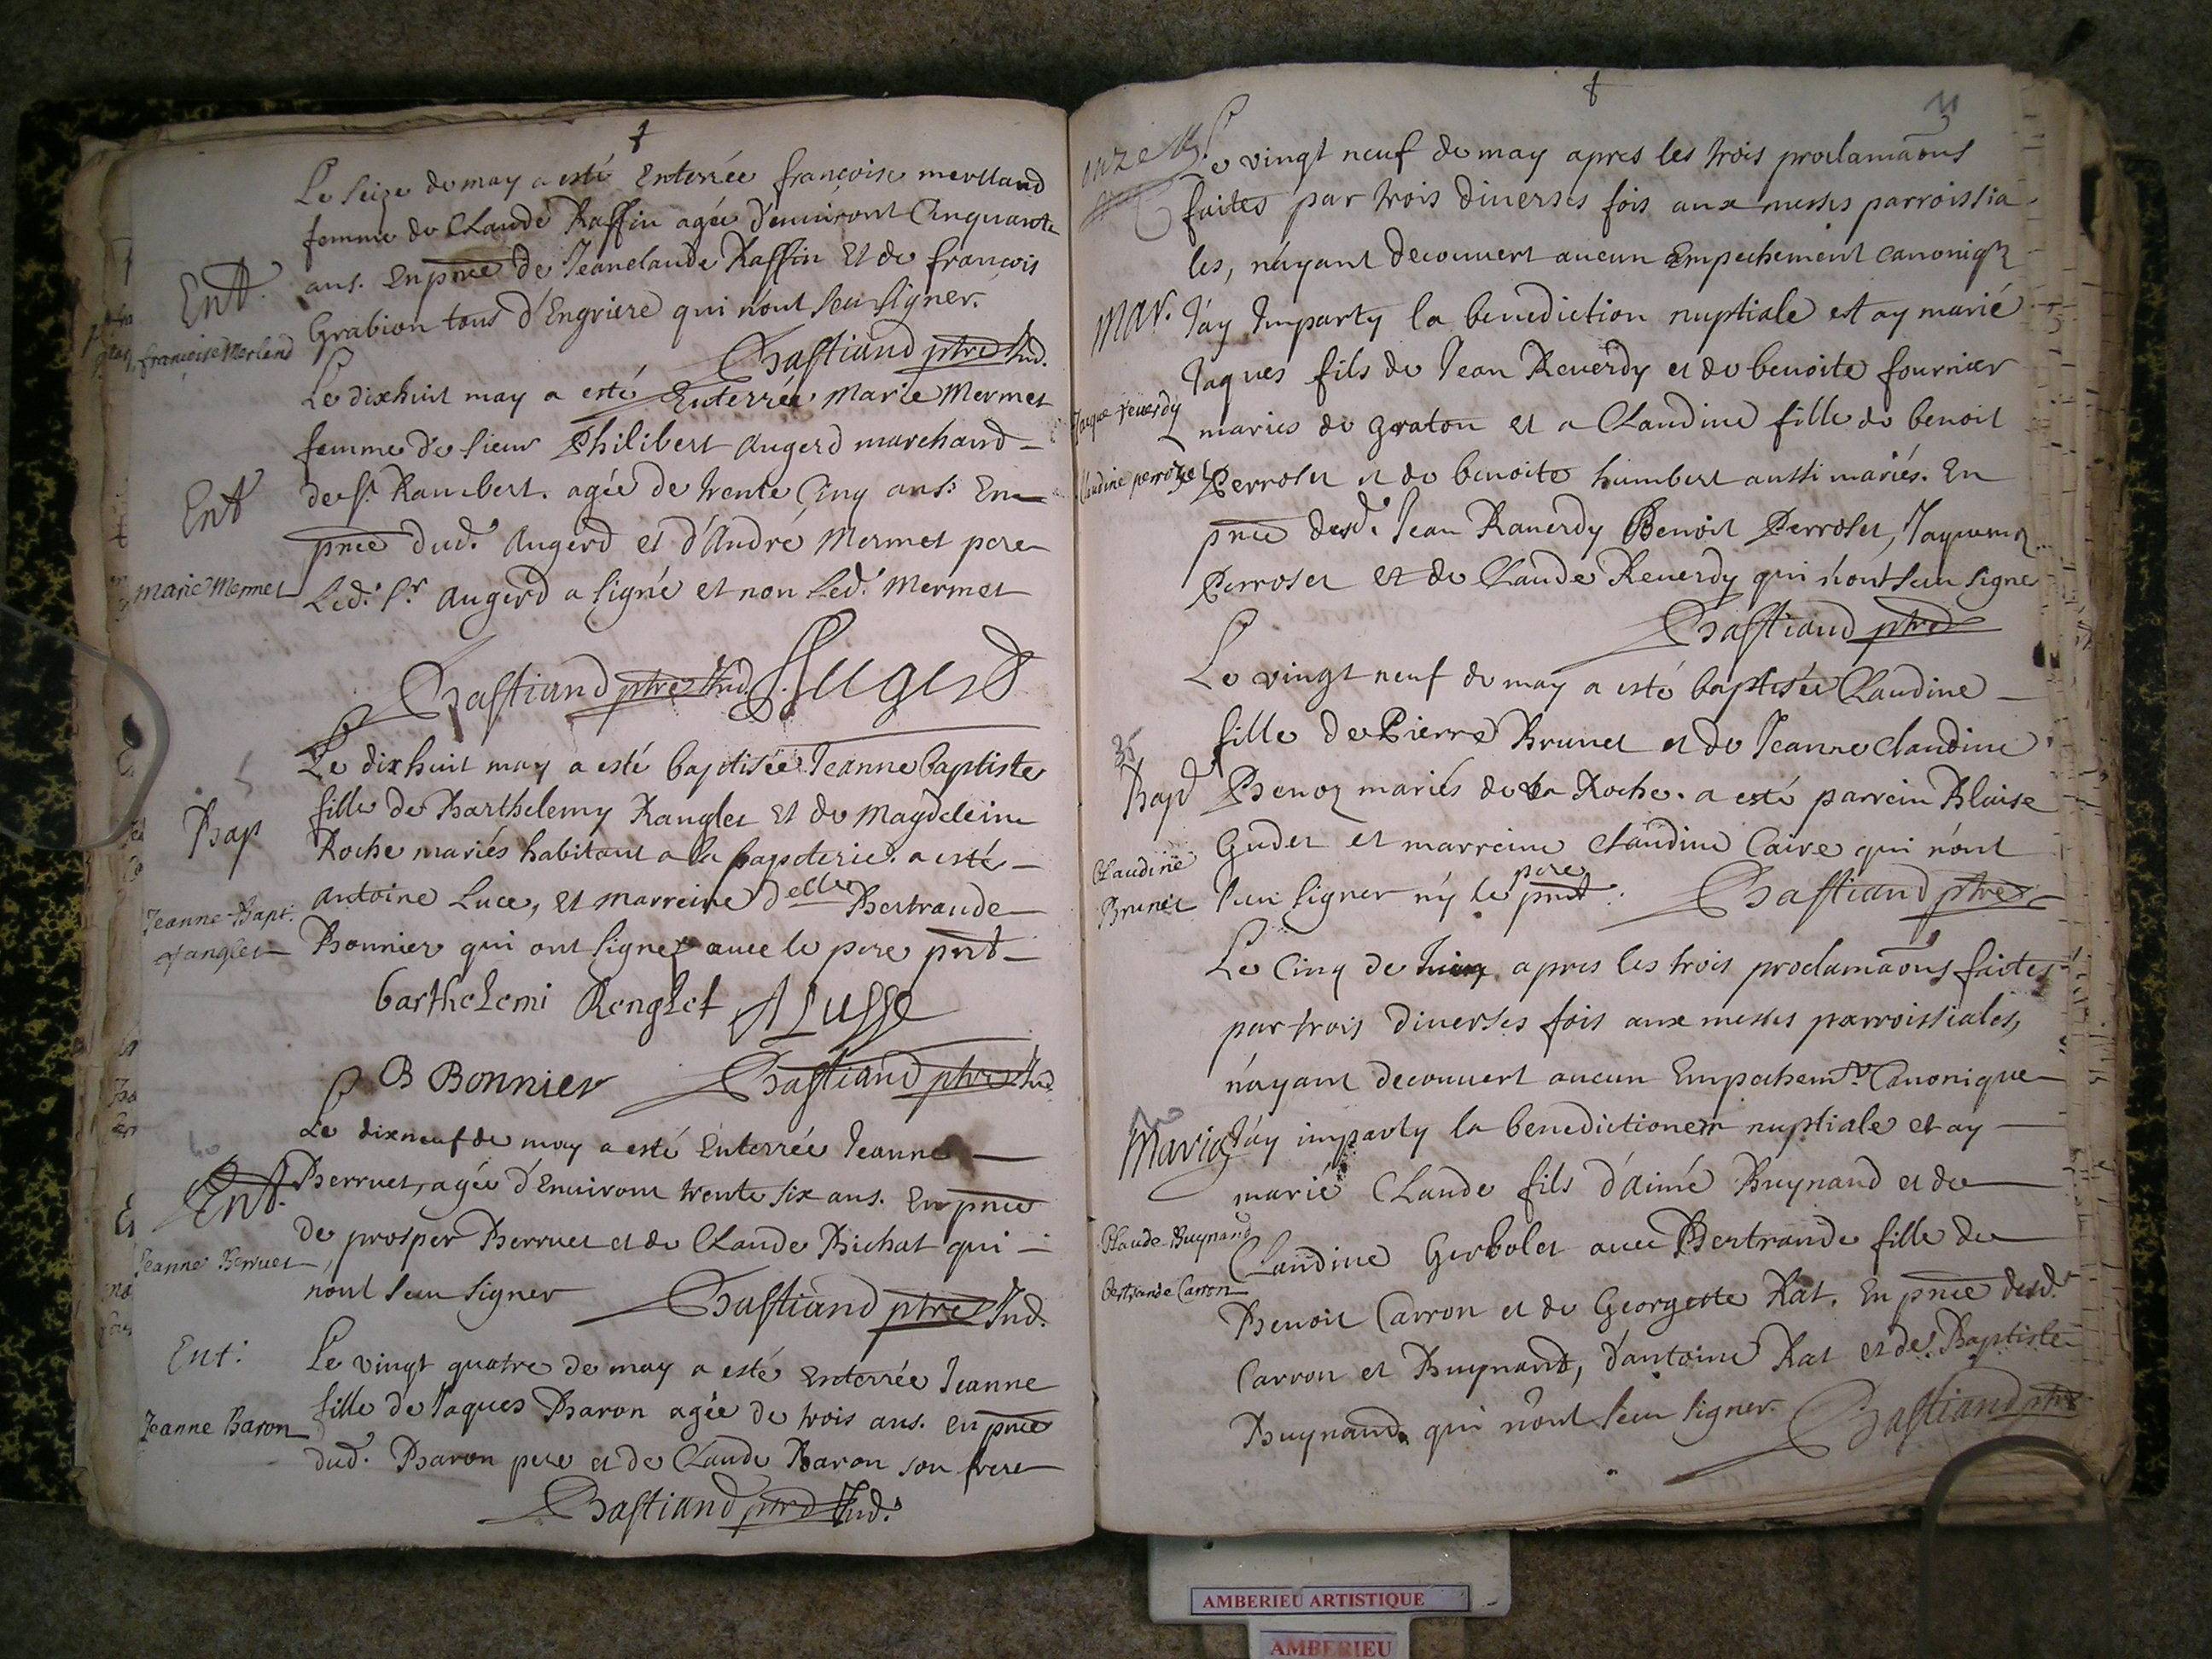 Le seize de may a esté Enterrée françoise merlland
femme de Claude Raffin agée d'environt Cinquante
ans. En pnce de Jeanclaude Raffin Et de francois
Ent.
Grabion tous d'Engriere qui n'ont sceu signer.
françoise Merland
Bastiand ptre Ind.
Le dixhuit may a esté Enterrée Marie Mermet
femme de sieur Philibert Augerd marchand
Ent
de St. Rambert. agée de trente Cinq ans. En
pnce dud. Augerd et d'André Mermet pere
marie Mermet
Led. Sr. Augerd a signé et non Led. Mermet
Bastiand ptre Ind. Augerd
Le dixhuit may a esté baptisée Jeanne baptiste
fille de Barthelemy Ranglet Et de Magdeleine
Bap
Roche mariés habitant a la papeterie. a esté
Jeanne-Bapt.
antoine Luce, et marreine delle Bertrande
Ranglet
Bonnier qui ont signez avec le pere prnt
barthelemi Renglet A Lusse
B Bonnier Bastiand ptre Ind.
Le dixneuf de may a esté Enterrée Jeanne
Ent.
Berruet, agée d'Environt trente six ans. En pnce
de prosper Berruet et de Claude Bichat qui
Jeanne Berruet
n'ont sceu signer Bastiand ptre Ind.
Ent:
Le vingt quatre de may a esté Enterrée Jeanne
fille de Jaques Baron agée de trois ans. en pnce
Jeanne Baron
dud. Baron pere et de Claude Baron son frere
Bastiand ptre Ind.
onze
11
Le vingt neuf de may apres les trois proclamaons
faites par trois diverses fois aux messes parroissia
les, n'ayant decouvert aucun Empechement canoniq
Mar.
J'ay Imparty la benediction nuptiale et ay marié
Jaques fils de Jean Reverdy et de benoite fournier
Jaque reverdy
mariés de graton et a Claudine fille de benoit
Claudine perrozet
Perroset et de benoite humbert aussi mariés. En
pnce desd. Jean Raverdy Benoit Perroset, Jaquemo
Perroset et de Claude Reverdy qui n'ont sceu signe
Bastiand ptre
Le vingt neuf de may a esté baptisée Claudine
fille de Pierre Brunet et de Jeanne claudine
35
Bapt
Benoz mariés de la Roche. a esté parrein Blaise
Gudet et marreine Claudine Caire qui n'ont
Claudine
Brunet
sceu signer n'y le pere prnt. Bastiand ptre
Le Cinq de Juin apres les trois proclamaons faites
par trois diverses fois aux messes parroissiales,
n'ayant decouvert aucun Empechemt. Canonique
Mariag
J'ay imparty la benediction nuptiale et ay
marié Claude fils d'aimé Buynand et de
Claude Buynand
Claudine Gerbolet avec Bertrande fille de
Bertrande Carron
Benoit Carron et de Georgette Rat. En pnce desd.
Carron et Buynand, d'antoine Rat et de Baptiste
Buynand qui n'ont sceu signer. Bastiand ptre
AMBERIEU ARTISTIQUE
AMBERIEU